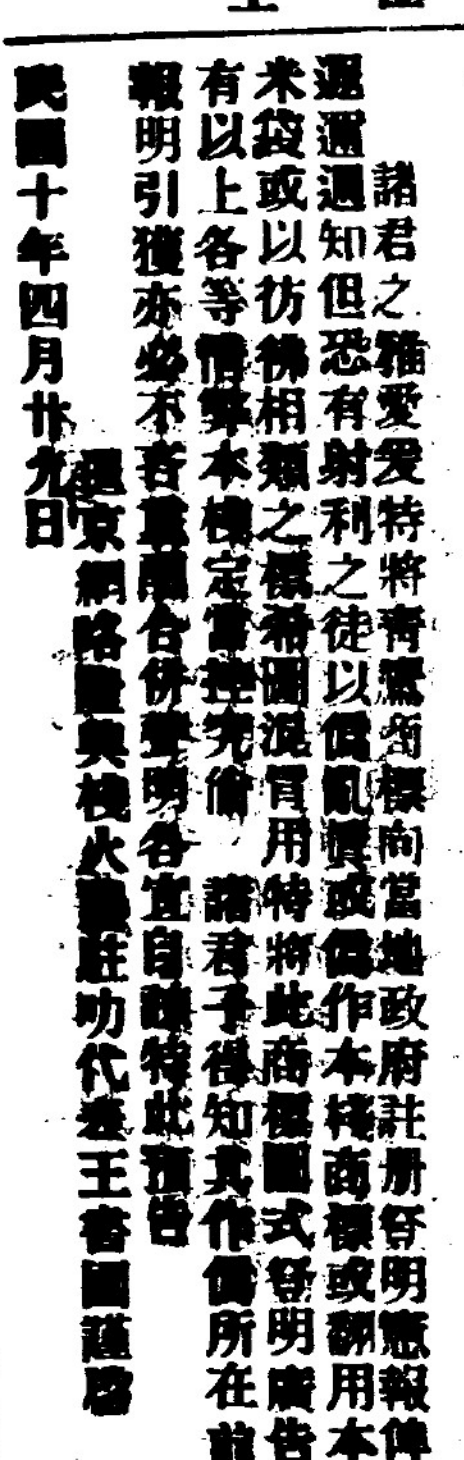 諸君之雅愛爰特將青鸞商標向當地政府註册登明憲報俾
遐邇週知但恐有射利之徒以僞亂眞或僞作本棧商標或翻用本
米袋或以彷彿相類之標希圖混冒用特將此商標圖式登明廣告
有以上各等情弊本棧定當控究倘 諸君子得知其作僞所在前
報明引獲亦必不吝重酬合併聲明各宜自諒特此預告
暹京網咯 興棧火 駐叻代表王書國謹啓
民國十年四月廿九日